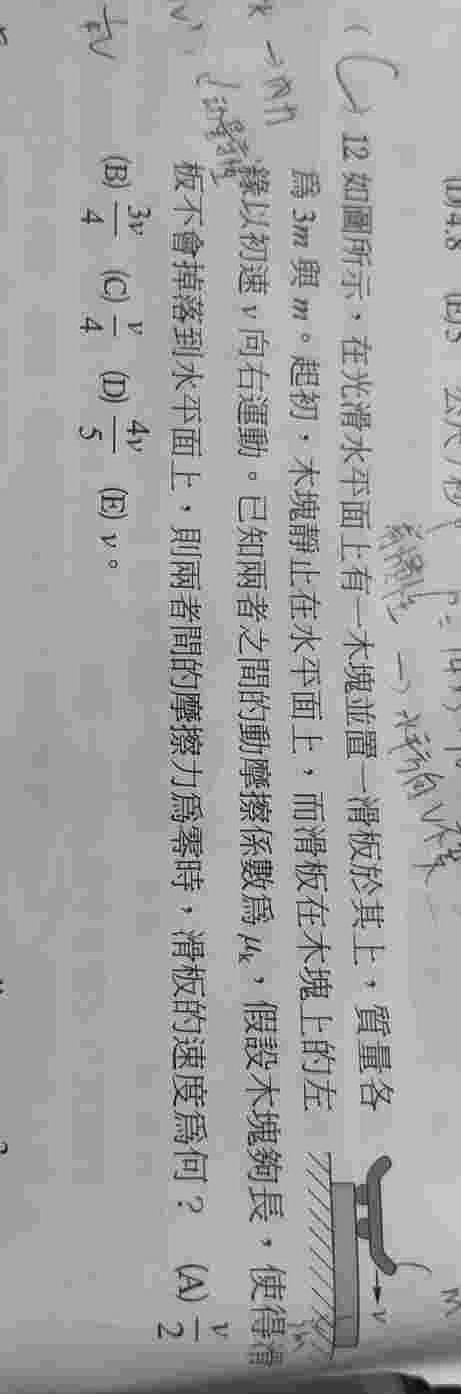 (D) 4.8 (E) 5 公尺／秒。
(C) 12 如圖所示，在光滑水平面上有一木塊並置一滑板於其上，質量各
為 3m 與 m。起初，木塊靜止在水平面上，而滑板在木塊上的左
緣以初速 v 向右運動。已知兩者之間的動摩擦係數為 μk，假設木塊夠長，使得滑
板不會掉落到水平面上，則兩者間的摩擦力為零時，滑板的速度為何？ (A) v/2
(B) 3v/4 (C) v/4 (D) 4v/5 (E) v。
v
有慣性 → 水平方向 v 不變
→ 內力
動量守恆
M